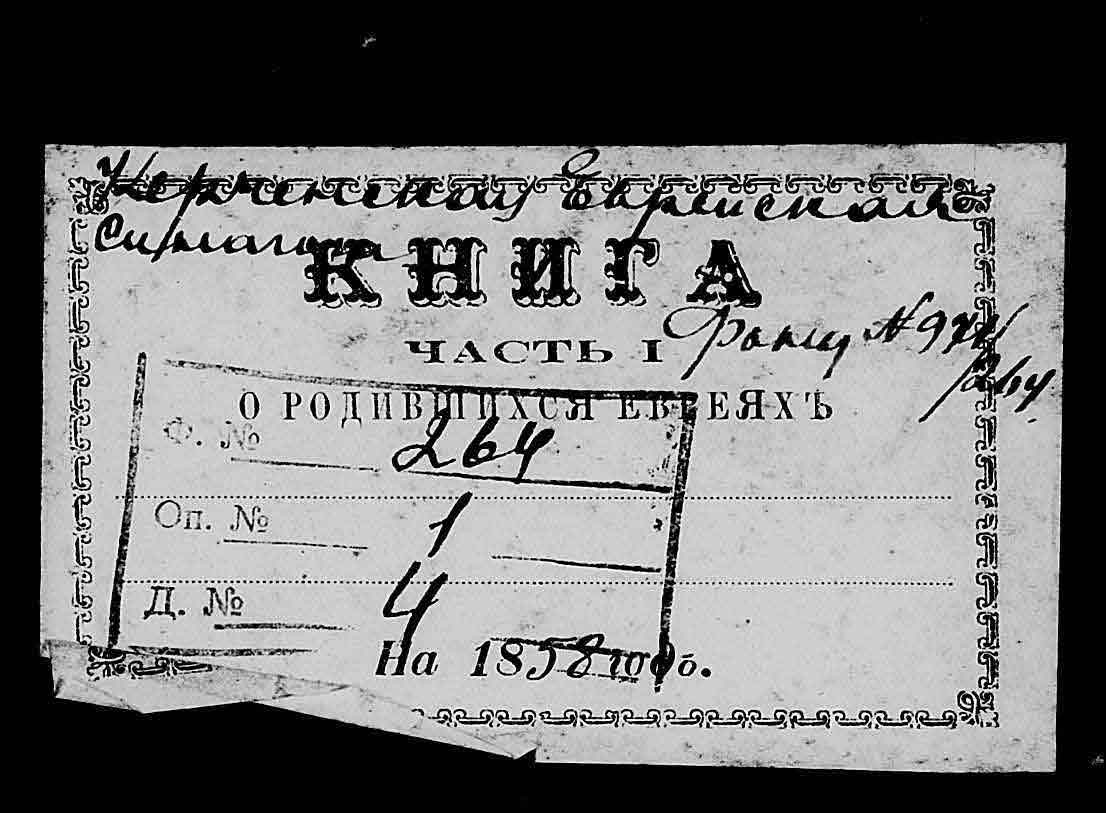 Керченская Еврейская
Синагога
КНИГА
ЧАСТЬ I
О РОДИВШИХСЯ ЕВРЕЯХЪ
Ф. № 264
Оп. № 1
Д. № 4
На 1858 годъ.